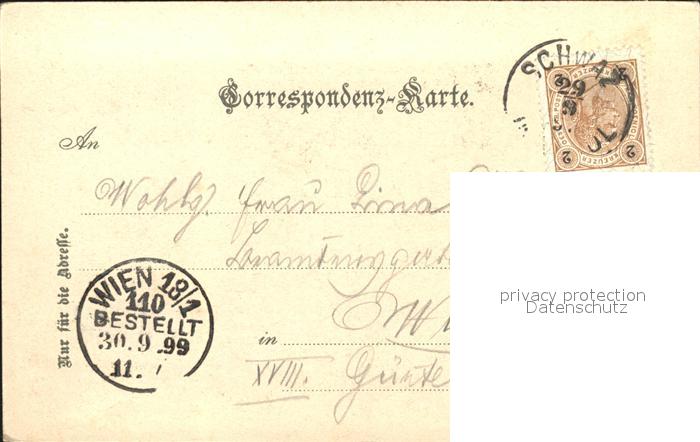 Correspondenz-Karte.
SCHWA
29
9
2 KREUZER 2
An
Wohlg. Frau Lina
Beamtensgatt
in Wi
XVIII. Günte
Nur für die Adresse.
WIEN 18/1
110
BESTELLT
30.9.99
11.
privacy protection
Datenschutz